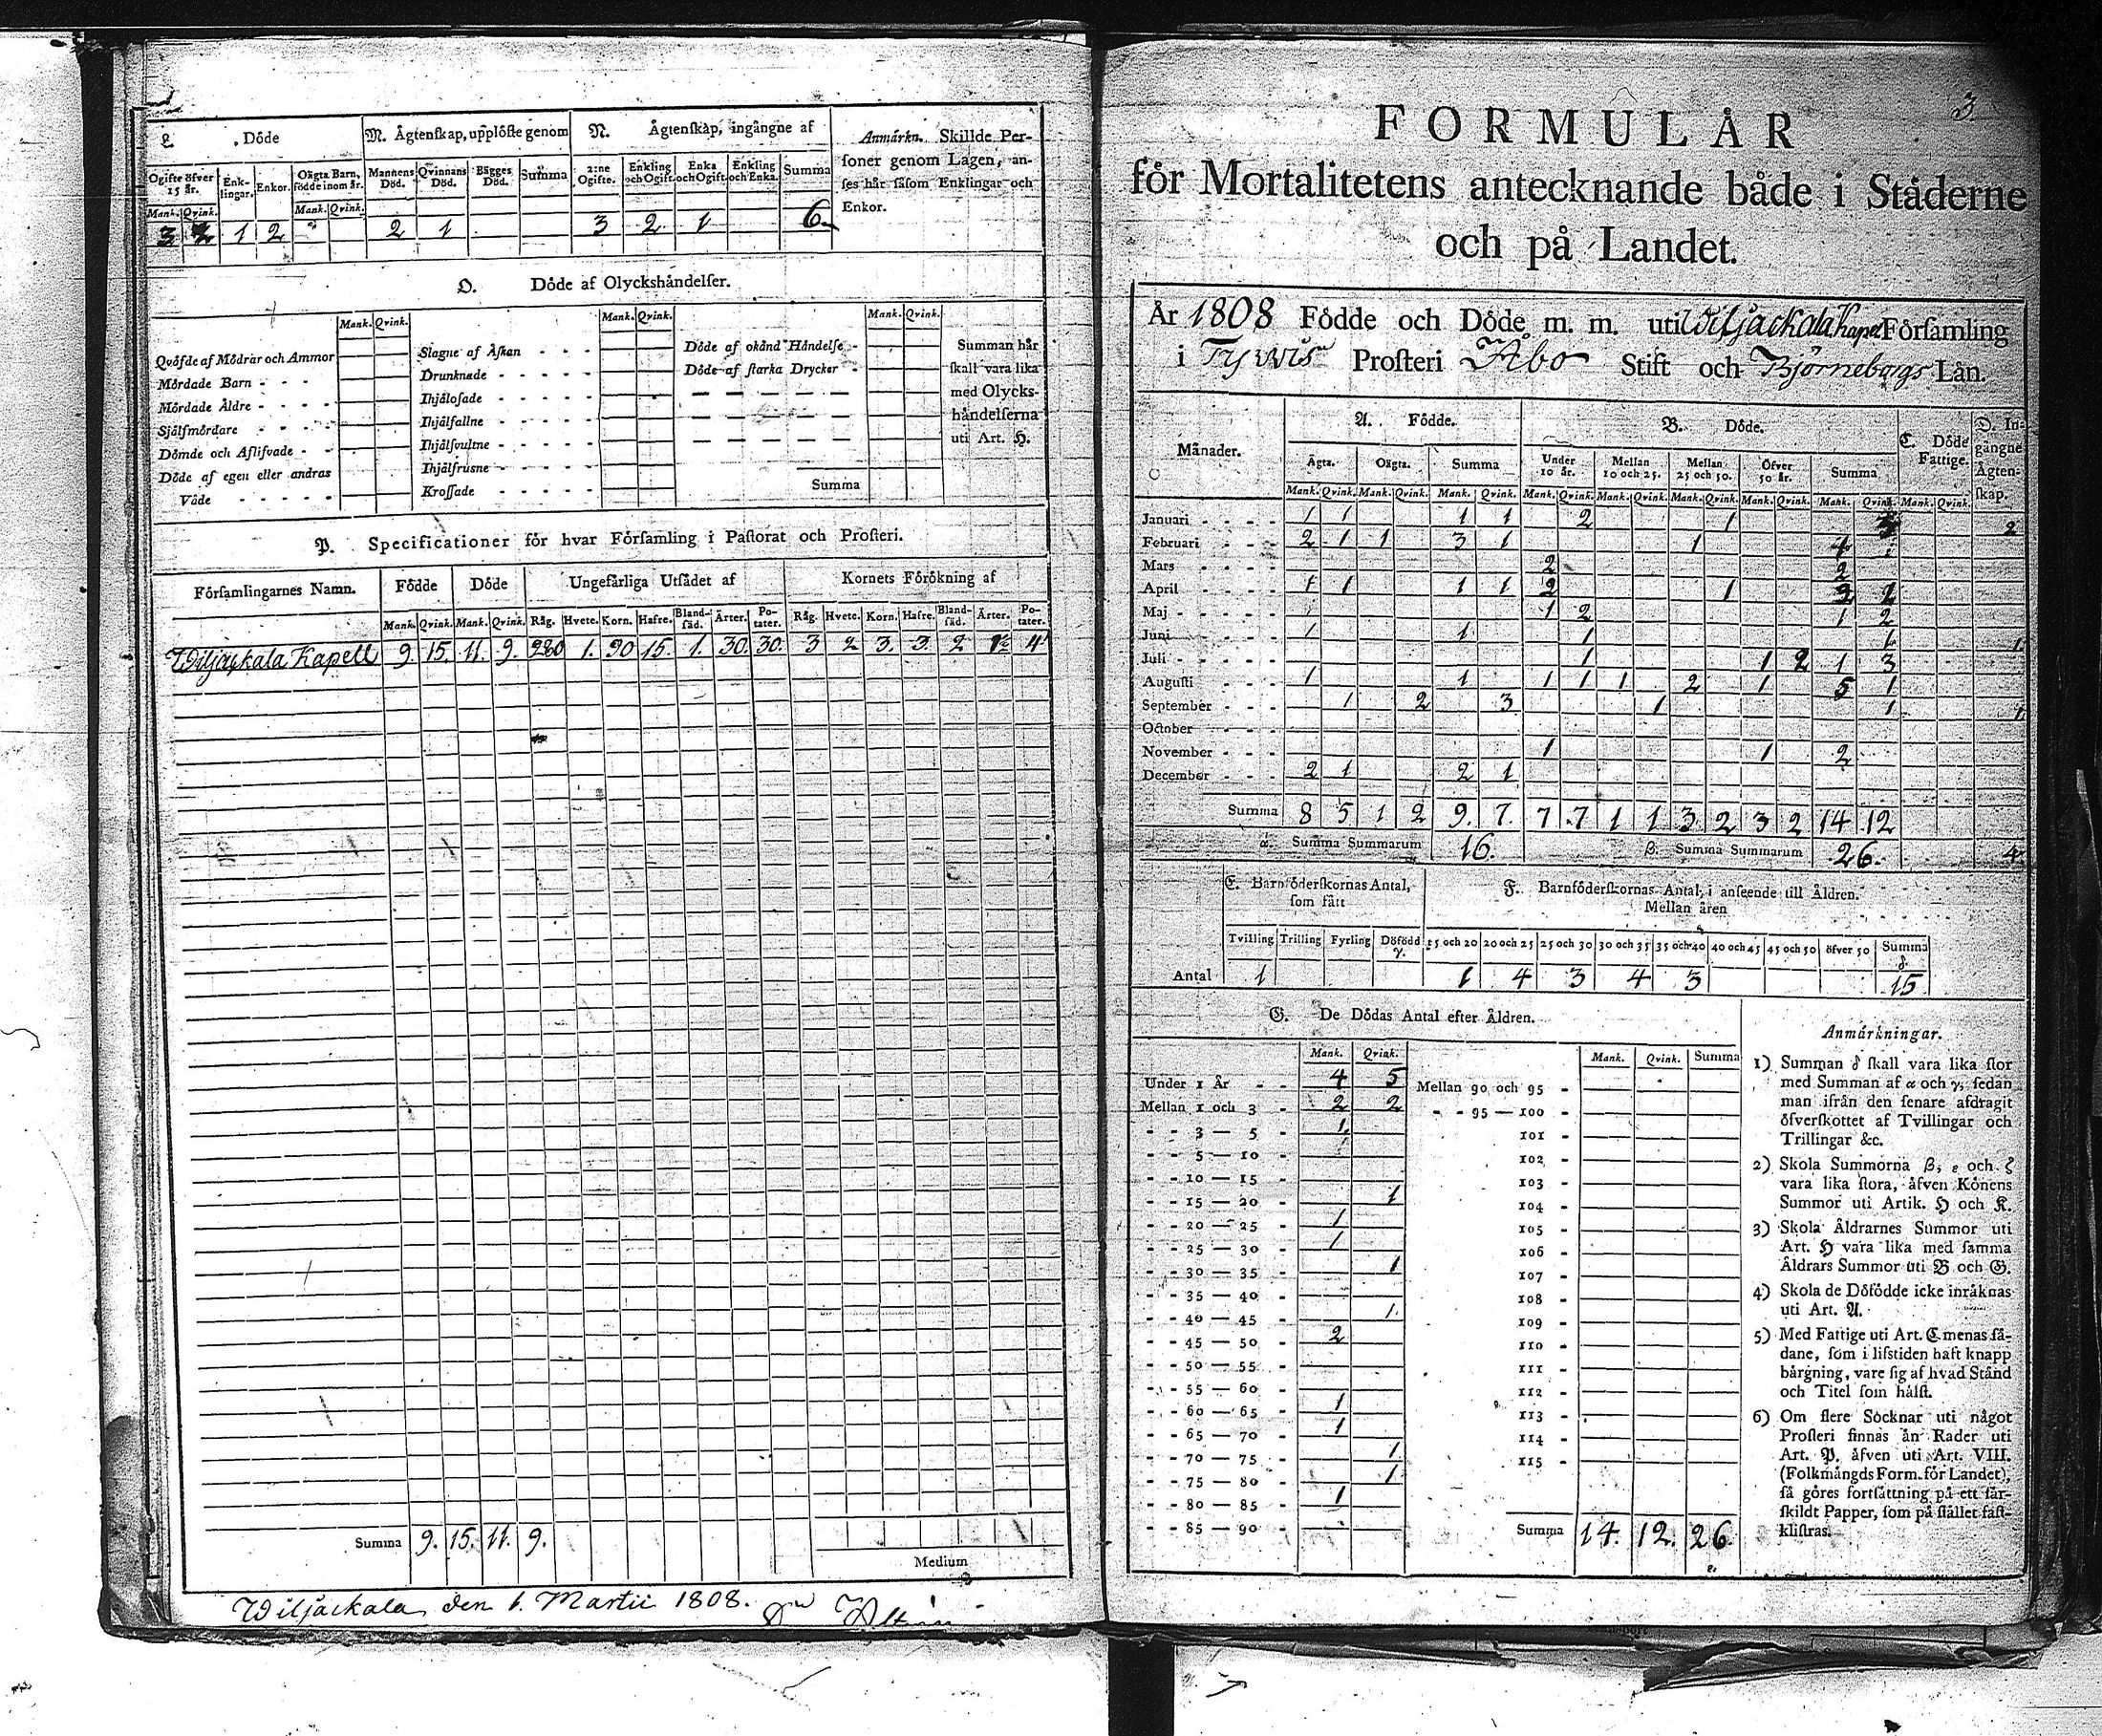 L. Döde
M. Ägtenskap, upplöste genom
N. Ägtenskap, ingångne af
Anmärkn. Skillde Per-
soner genom Lagen, an-
ses här såsom Enklingar och
Enkor.
Ogifte öfver 15 år. Enk-lingar. Enkor. Oägta Barn, födde inom år. Mannens Död. Qvinnans Död. Bägges Död. Summa 2:ne Ogifte. Enkling och Ogift. Enka och Ogift. Enkling och Enka. Summa
Mank. Qvink. Mank. Qvink.
3 2 1 2 2 1 3 2 1 6
O. Döde af Olyckshändelser.
Mank. Qvink. Mank. Qvink. Mank. Qvink.
Qväfde af Mödrar och Ammor
Mördade Barn
Mördade Äldre
Självmördare
Dömde och Aflifvade
Döde af egen eller andras
Våde
Slagne af Åskan
Drunknade
Ihjälosade
Ihjälfallne
Ihjälsvultne
Ihjälfrusne
Krossade
Döde af okänd Händelse
Döde af starka Drycker
Summa
Summan här
skall vara lika
med Olycks-
händelserna
uti Art. H.
P. Specificationer för hvar Församling i Pastorat och Prosteri.
Församlingarnes Namn. Födde Döde Ungefärliga Utsädet af Kornets Förökning af
Mank. Qvink. Mank. Qvink. Råg. Hvete. Korn. Hafre. Bland-säd. Ärter. Po-tater. Råg. Hvete. Korn. Hafre. Bland-säd. Ärter. Po-tater.
Wiljackala Kapell 9. 15. 11. 9. 280 1. 90 15. 1. 30. 30. 3 2 3. 3. 2 4
Summa 9. 15. 11. 9.
Medium
Wiljackala den 1. Martii 1808.
3
FORMULÄR
för Mortalitetens antecknande både i Städerne
och på Landet.
År 1808 Födde och Döde m. m. uti Wiljackala Kapel Församling
i Tyrvis Prosteri Åbo Stift och Björneborgs Län.
Månader. A. Födde. B. Döde. C. Döde Fattige. D. In-gångne Ägten-skap.
Ägta. Oägta. Summa Under 10 år. Mellan 10 och 25. Mellan 25 och 50. Öfver 50 år. Summa
Mank. Qvink. Mank. Qvink. Mank. Qvink. Mank. Qvink. Mank. Qvink. Mank. Qvink. Mank. Qvink. Mank. Qvink. Mank. Qvink.
Januari 1 1 1 1 2 1 3 2
Februari 2 1 1 3 1 1 1
Mars 2 2
April 1 1 1 1 2 1 2 1
Maj 1 2 1 2
Juni 1 1 1 1 1
Juli 1 1 2 1 3
Augusti 1 1 1 1 1 2 1 5 1
September 1 2 3 1 1 1
October
November 1 1 2
December 2 1 2 1
Summa 8 5 1 2 9. 7. 7 7 1 1 3 2 3 2 14 12
α. Summa Summarum 16. β. Summa Summarum 26. 4.
E. Barnföderskornas Antal,
som fått
F. Barnföderskornas Antal, i anseende till Åldren.
Mellan åren
Tvilling Trilling Fyrling Döfödd γ. 15 och 20 20 och 25 25 och 30 30 och 35 35 och 40 40 och 45 45 och 50 öfver 50 Summa δ.
Antal 1 1 4 3 4 3 15
G. De Dödas Antal efter Åldren.
Mank. Qvink. Mank. Qvink. Summa
Under 1 År 4 5
Mellan 1 och 3 2 2
3 — 5 1
5 — 10
10 — 15
15 — 20 1
20 — 25 1
25 — 30 1
30 — 35 1
35 — 40
40 — 45 1
45 — 50 2
50 — 55
55 — 60
60 — 65 1
65 — 70 1
70 — 75 1
75 — 80 1
80 — 85 1
85 — 90
Mellan 90 och 95
95 — 100
101
102
103
104
105
106
107
108
109
110
111
112
113
114
115
Summa 14. 12. 26
Anmärkningar.
1) Summan δ skall vara lika stor
med Summan af α och γ, sedan
man ifrån den senare afdragit
öfverskottet af Tvillingar och
Trillingar &c.
2) Skola Summorna β, ε och ζ
vara lika stora, äfven Könens
Summor uti Artik. H och K.
3) Skola Åldrarnes Summor uti
Art. H vara lika med samma
Åldrars Summor uti B och G.
4) Skola de Döfödde icke inräknas
uti Art. A.
5) Med Fattige uti Art. C menas så-
dane, som i lifstiden haft knapp
bärgning, vare sig af hvad Stånd
och Titel som hälst.
6) Om flere Socknar uti något
Prosteri finnas än Rader uti
Art. P. äfven uti Art. VIII.
(Folkmängds Form. för Landet),
så göres fortsättning på ett sär-
skildt Papper, som på stället fast-
klistras.